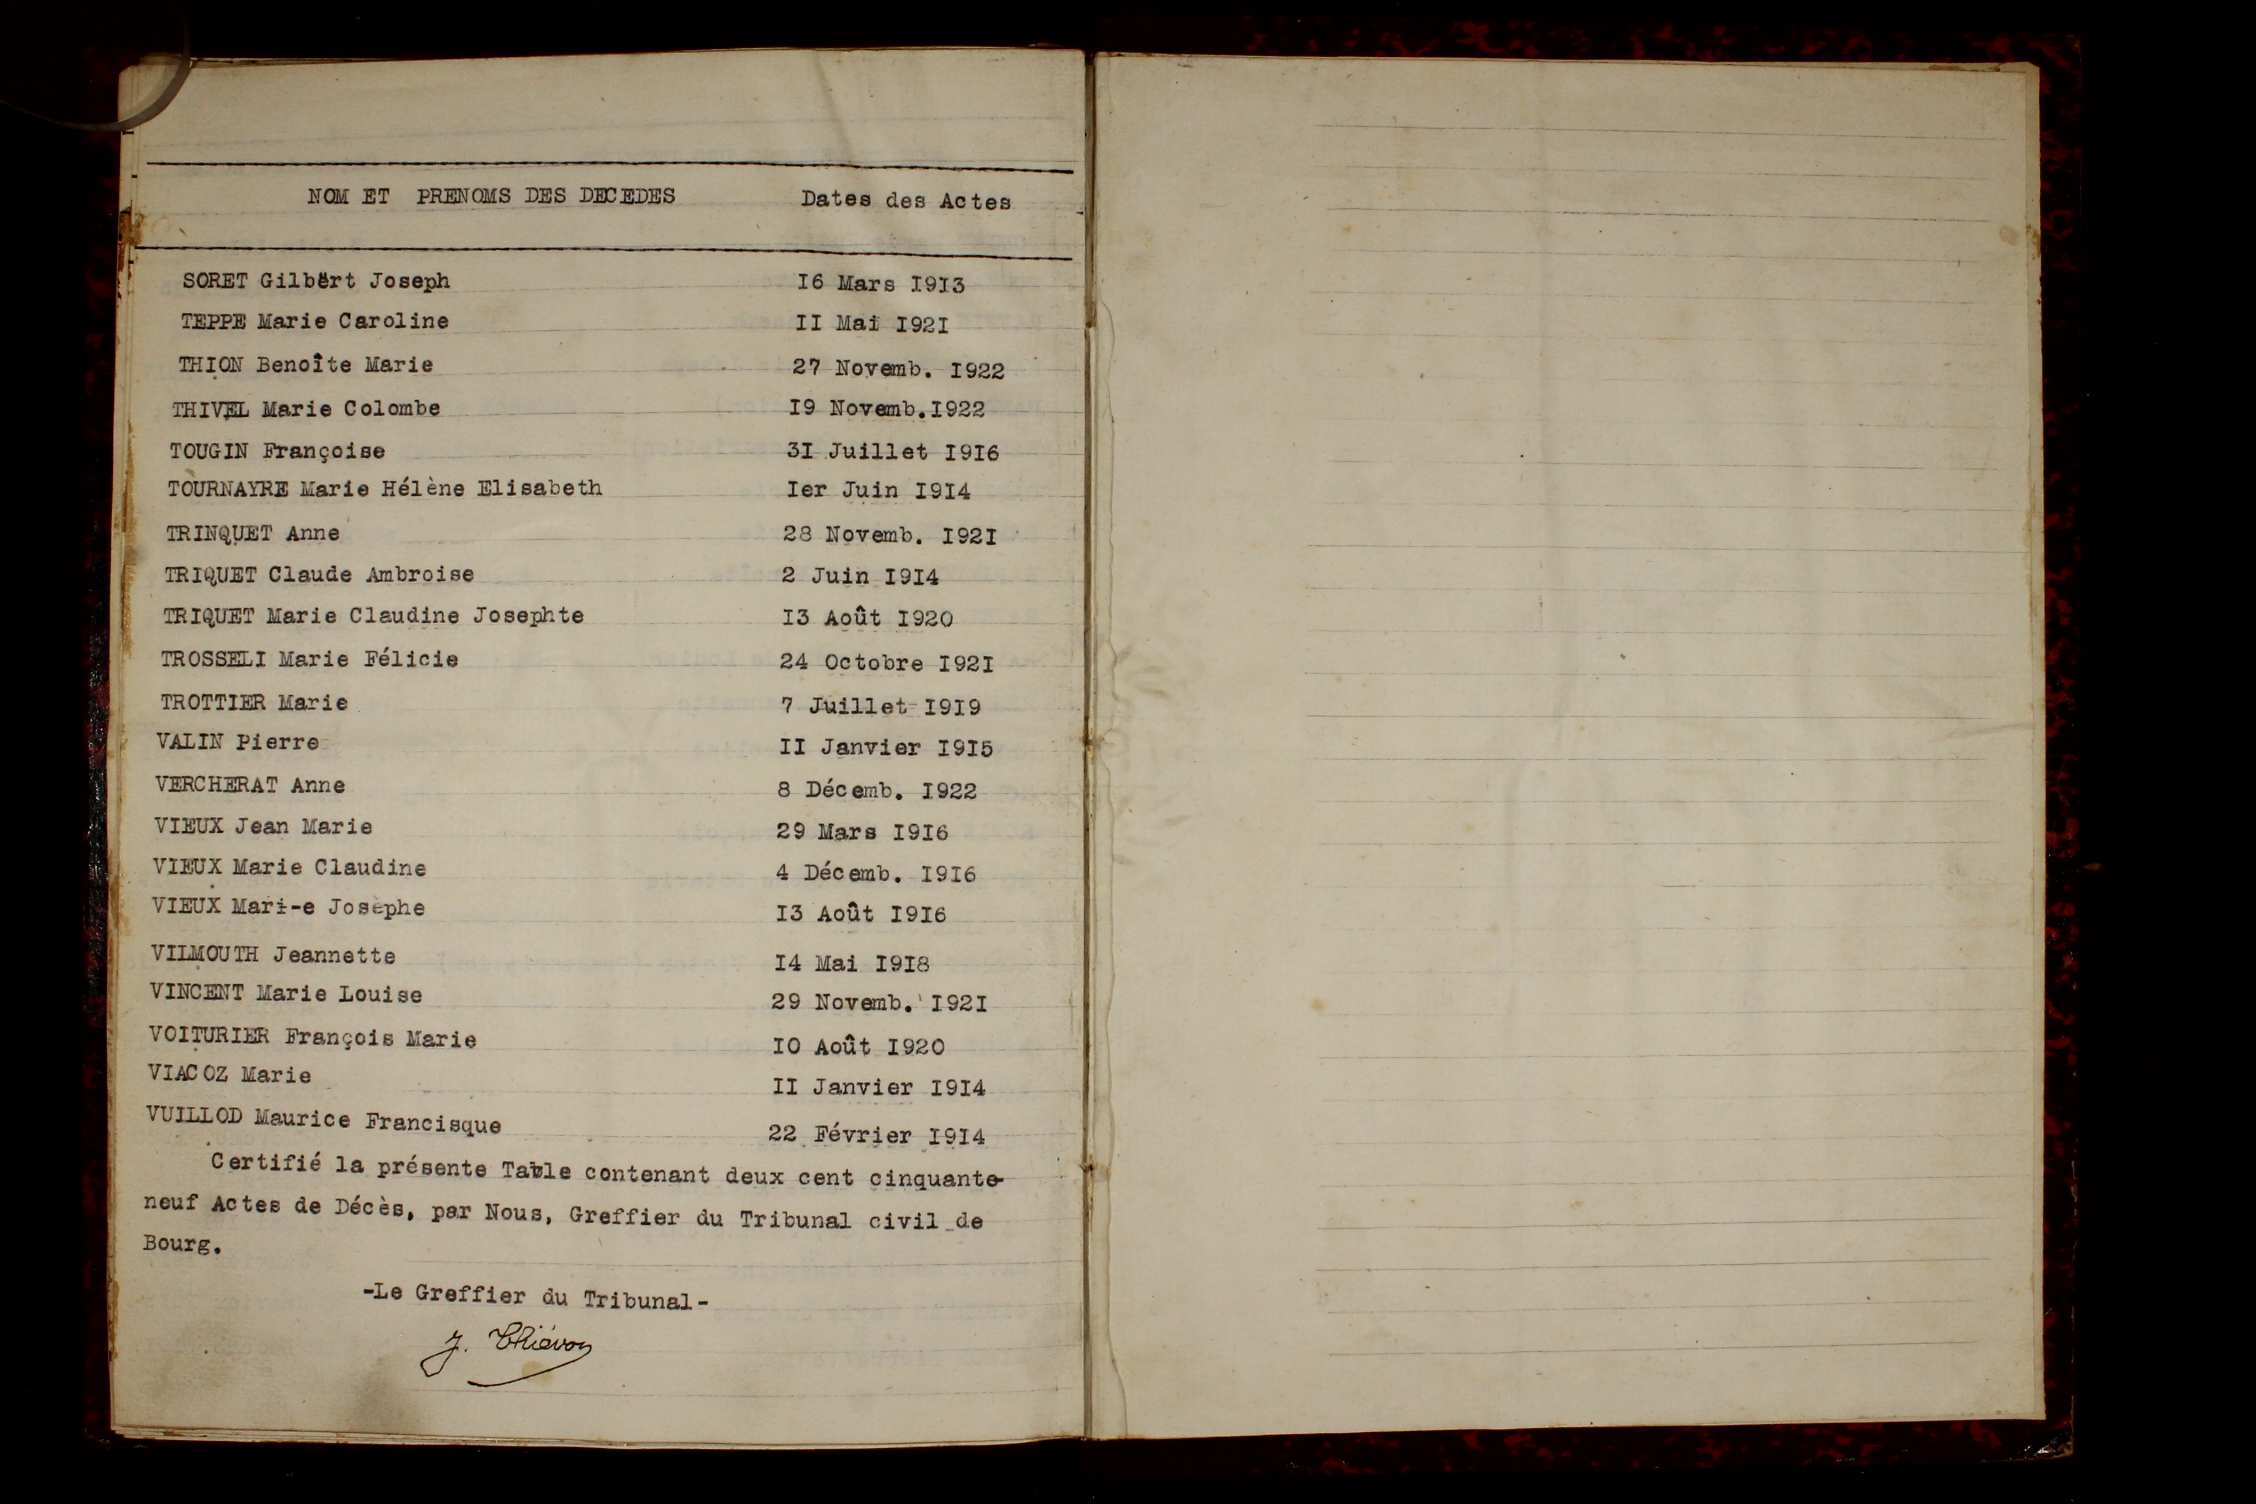 NOM ET PRENOMS DES DECEDES Dates des Actes
SORET Gilbert Joseph 16 Mars 1913
TEPPE Marie Caroline 11 Mai 1921
THION Benoîte Marie 27 Novemb. 1922
THIVEL Marie Colombe 19 Novemb.1922
TOUGIN Françoise 31 Juillet 1916
TOURNAYRE Marie Hélène Elisabeth 1er Juin 1914
TRINQUET Anne 28 Novemb. 1921
TRIQUET Claude Ambroise 2 Juin 1914
TRIQUET Marie Claudine Josephte 13 Août 1920
TROSSELI Marie Félicie 24 Octobre 1921
TROTTIER Marie 7 Juillet 1919
VALIN Pierre 11 Janvier 1915
VERCHERAT Anne 8 Décemb. 1922
VIEUX Jean Marie 29 Mars 1916
VIEUX Marie Claudine 4 Décemb. 1916
VIEUX Mari-e Josèphe 13 Août 1916
VILMOUTH Jeannette 14 Mai 1918
VINCENT Marie Louise 29 Novemb. 1921
VOITURIER François Marie 10 Août 1920
VIACOZ Marie 11 Janvier 1914
VUILLOD Maurice Francisque 22 Février 1914
Certifié la présente Table contenant deux cent cinquante-
neuf Actes de Décès, par Nous, Greffier du Tribunal civil de
Bourg.
-Le Greffier du Tribunal-
J. Thiévon